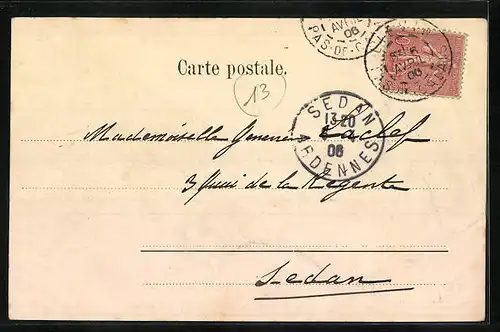 1 AVRIL 06
PAS-DE-C
AVRIL 06
Carte postale.
13
SEDAN
13-20
06
ARDENNES
Mademoiselle Laclef
3 Quai de la Régente
Sedan